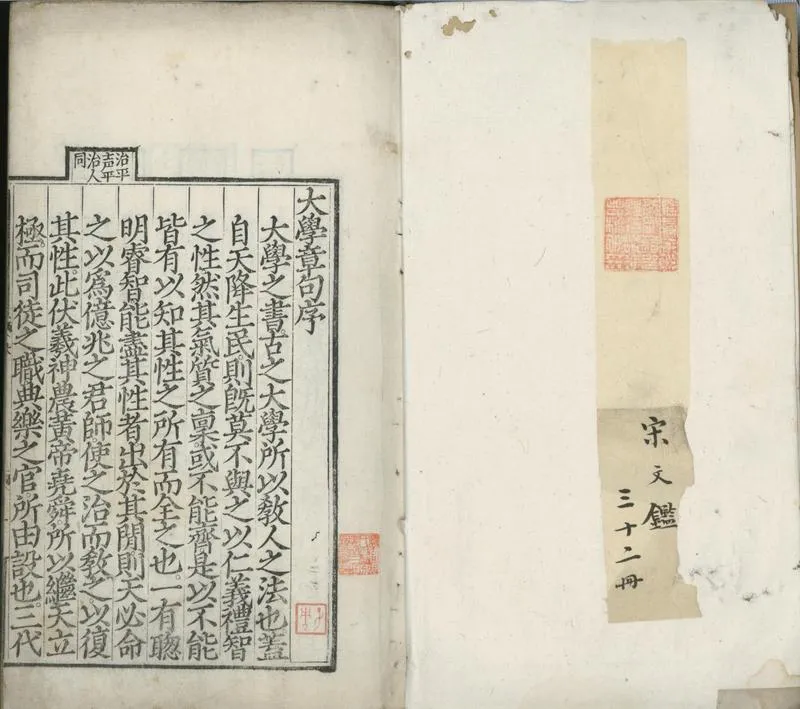 宋文鑑
三十二冊
治平
声平
治人
同
大學章句序
大學之書古之大學所以教人之法也蓋
自天降生民則既莫不與之以仁義禮智
之性然其氣質之稟或不能齊是以不能
皆有以知其性之所有而全之也一有聦
明睿智能盡其性者出於其閒則天必命
之以爲億兆之君師使之治而教之以復
其性此伏羲神農黃帝堯舜所以繼天立
極而司徒之職典樂之官所由設也三代